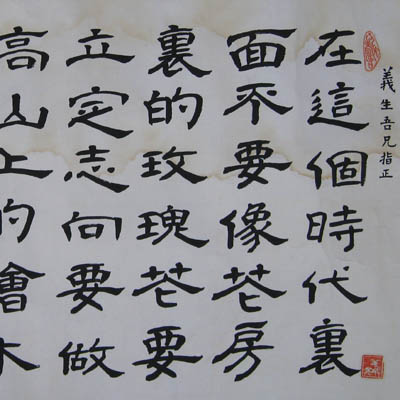 義生吾兄指正
在這個時代裏
面不要像花房
裏的玫瑰花要
立定志向要做
高山上的檜木